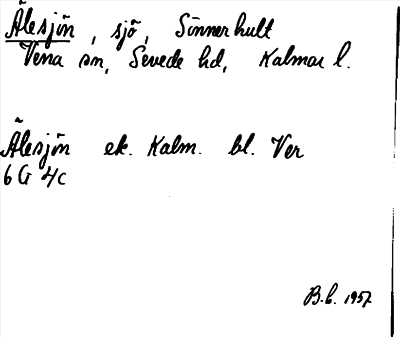 Ålesjön, sjö, Sinnerhult
Vena sn, Sevede hd, Kalmar l.
Ålesjön ek. Kalm. bl. Ver
6 G 4c
B.b. 1957